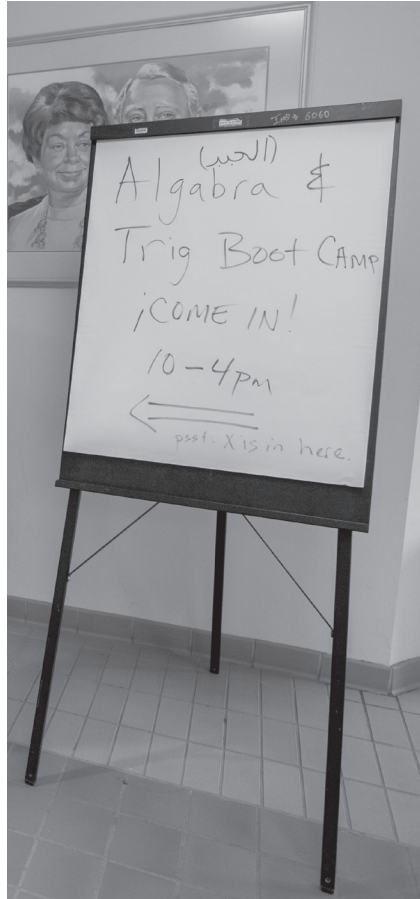 6060
(الجبر)
Algabra &
Trig Boot CAMP
¡COME IN!
10-4pm
psst. X is in here.